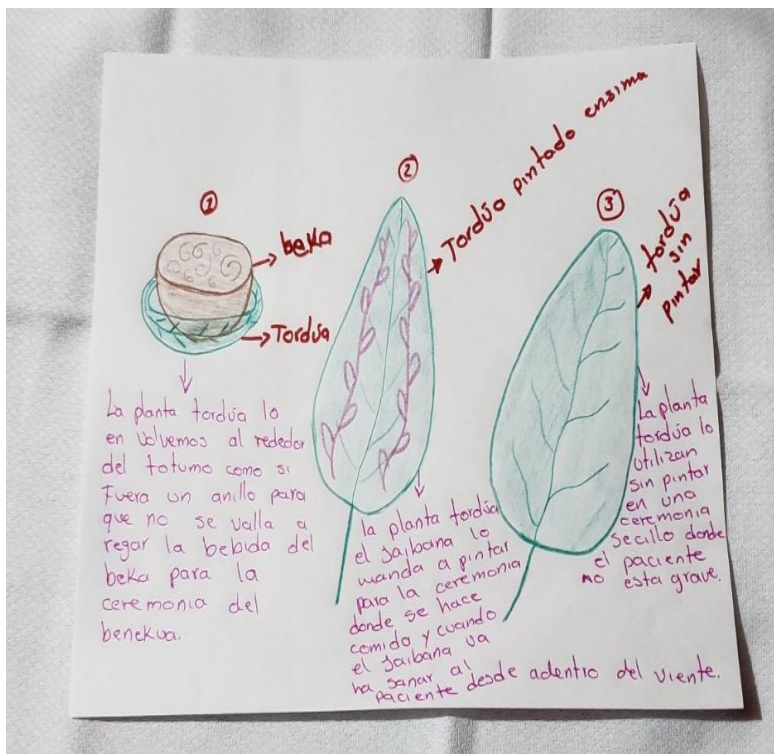 ①
beka
Tordúa
La planta tordúa lo
en volvemos al rededor
del totumo como si
fuera un anillo para
que no se valla a
regar la bebida del
beka para la
ceremonia del
benekua.
②
Tordúa pintado ensima
la planta tordúa
el Jaibana lo
manda a pintar
para la ceremonia
donde se hace
comida y cuando
el Jaibana va
ha sanar al
paciente desde adentro del viente.
③
tordúa
sin
pintar
La planta
tordúa lo
utilizan
sin pintar
en una
ceremonia
secillo donde
el paciente
no esta grave.